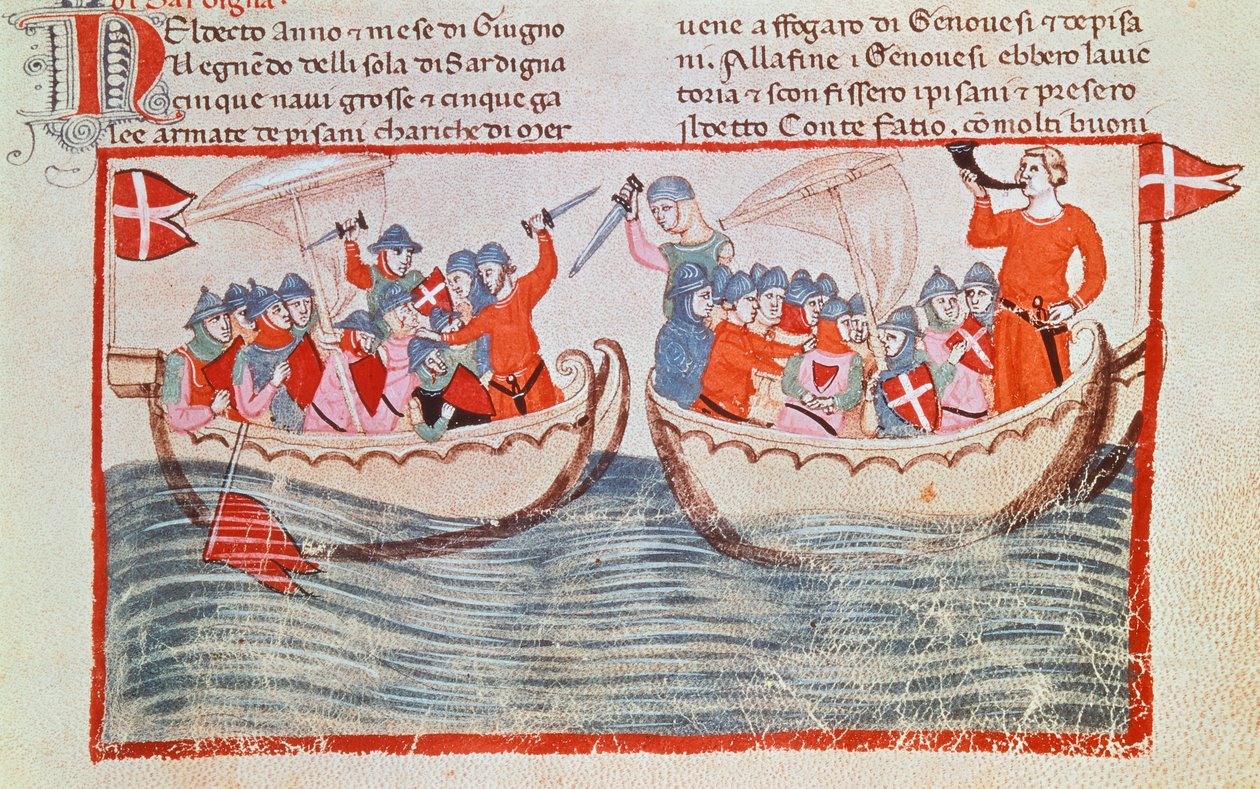 di Sardigna.
Nel decto Anno & mese di Giugno
Vegnēdo dell isola di Sardigna
cinque navi grosse & cinque ga
lee armate de pisani chariche di mer
vene affogaro di Genovesi & de pisa
ni. Alla fine i Genovesi ebbero la vic
toria & sconfissero i pisani & presero
Il detto Conte Fatio. cō molti buoni